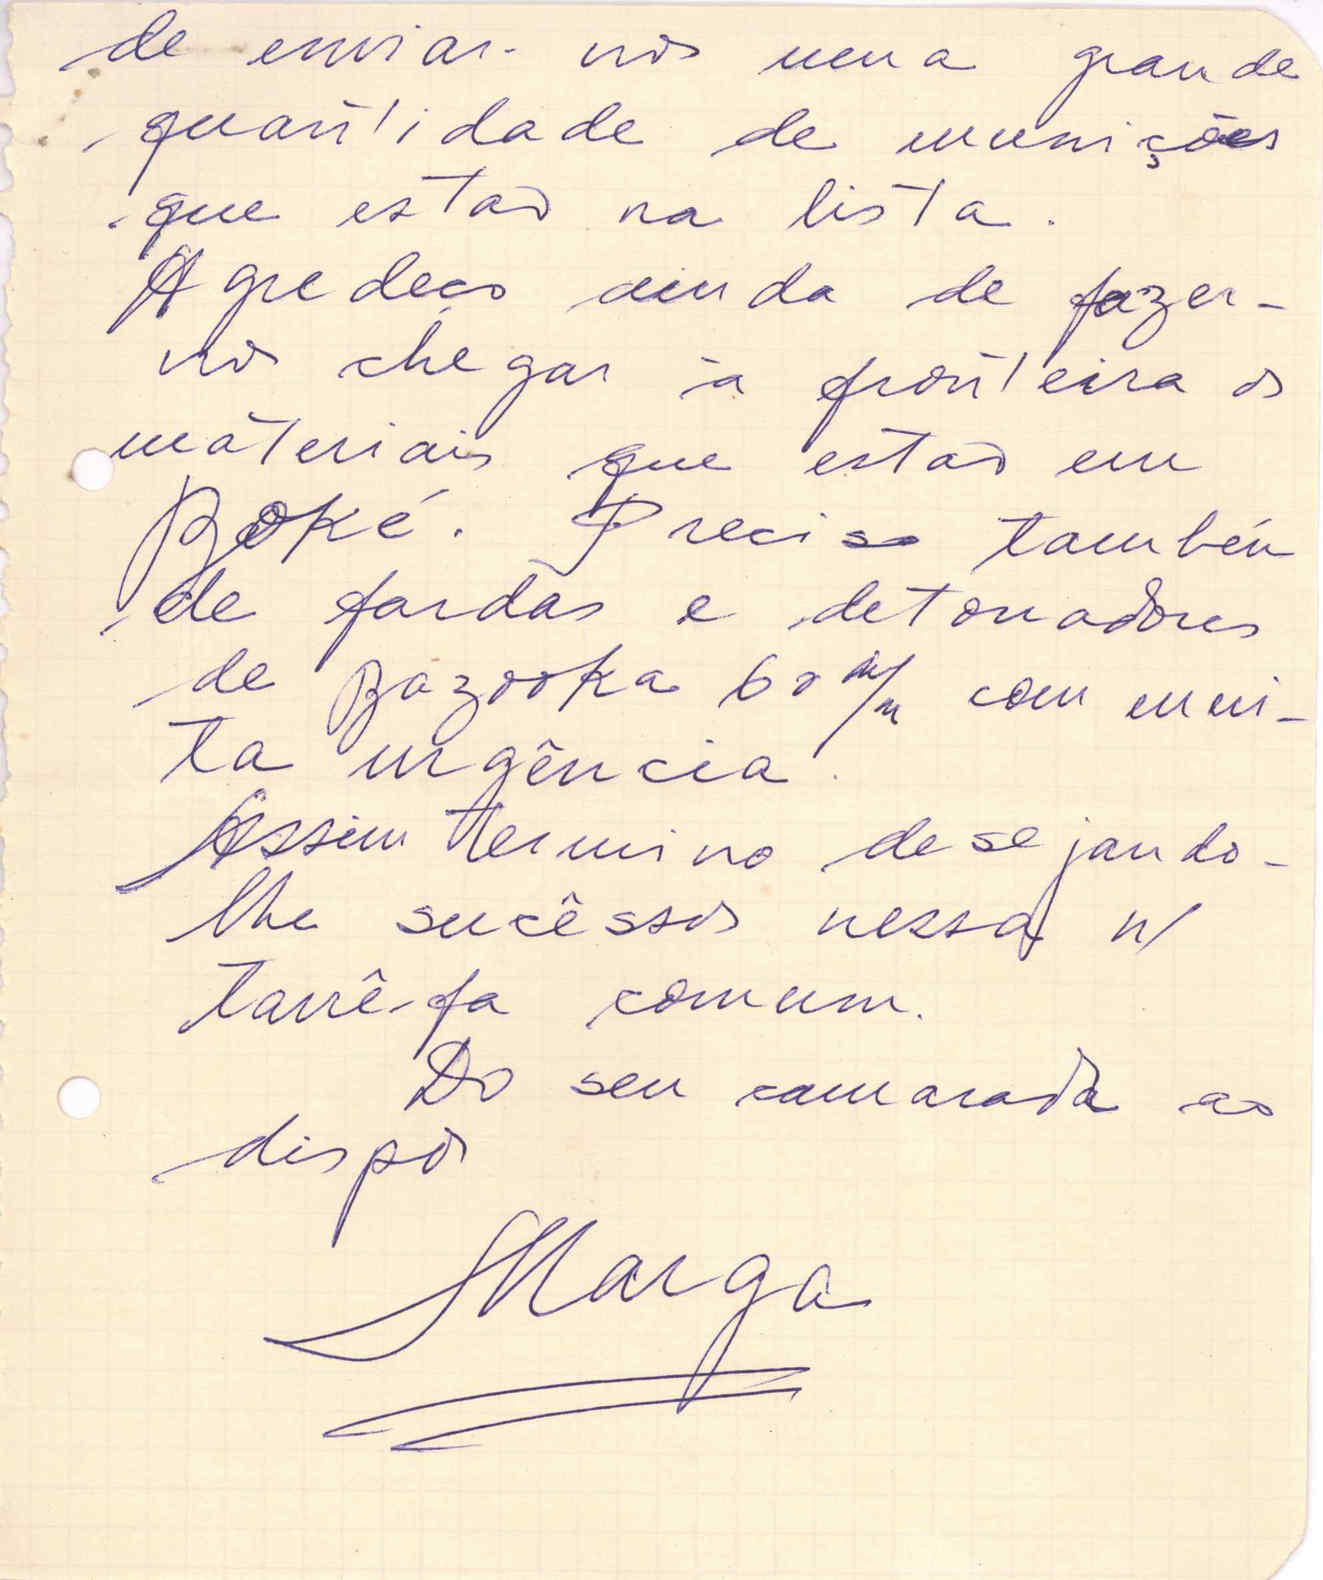 de enviar-nos uma grande
quantidade de munições
que estão na lista.
Agredeço ainda de fazer-
nos chegar à fronteira os
materiais que estão em
Boké. Preciso também
de fardas e detonadores
de Bazooka 60 m/m com mui-
ta urgência.
Assim termino desejando-
lhe sucêssos nessa n/
tarrêfa comum.
Do seu camarada ao
dispôr
Marga